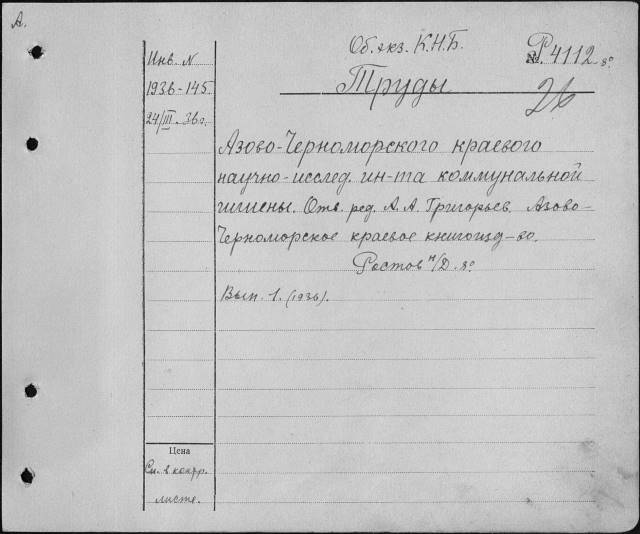 А.
Об. экз. К.Н.Б.
№ Р4112 8°
Труды
26
Инв. N
1936-145
24/III-36г.
Азово-Черноморского краевого
научно-исслед. ин-та коммунальной
гигиены. Отв. ред. А.А. Григорьев. Азово-
Черноморское краевое книгоизд-во.
Ростов н/Д. 8°
Вып. 1. (1936).
Цена
См. в контр.
листе.